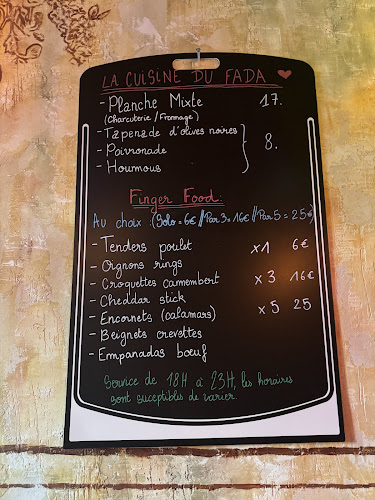 LA CUISINE DU FADA ❤
- Planche Mixte 17.
(Charcuterie / Fromage)
- Tapenade d'olives noires
- Poivronade 8.
- Houmous
Finger Food:
Au choix : (Solo = 6€ // Par 3 = 16€ // Par 5 = 25€)
- Tenders poulet x1 6€
- Oignons rings
- Croquettes camembert x 3 16€
- Cheddar stick
- Encornets (calamars) x 5 25
- Beignets crevettes
- Empanadas bœuf
Service de 18H à 23H, les horaires
sont suceptibles de varier.